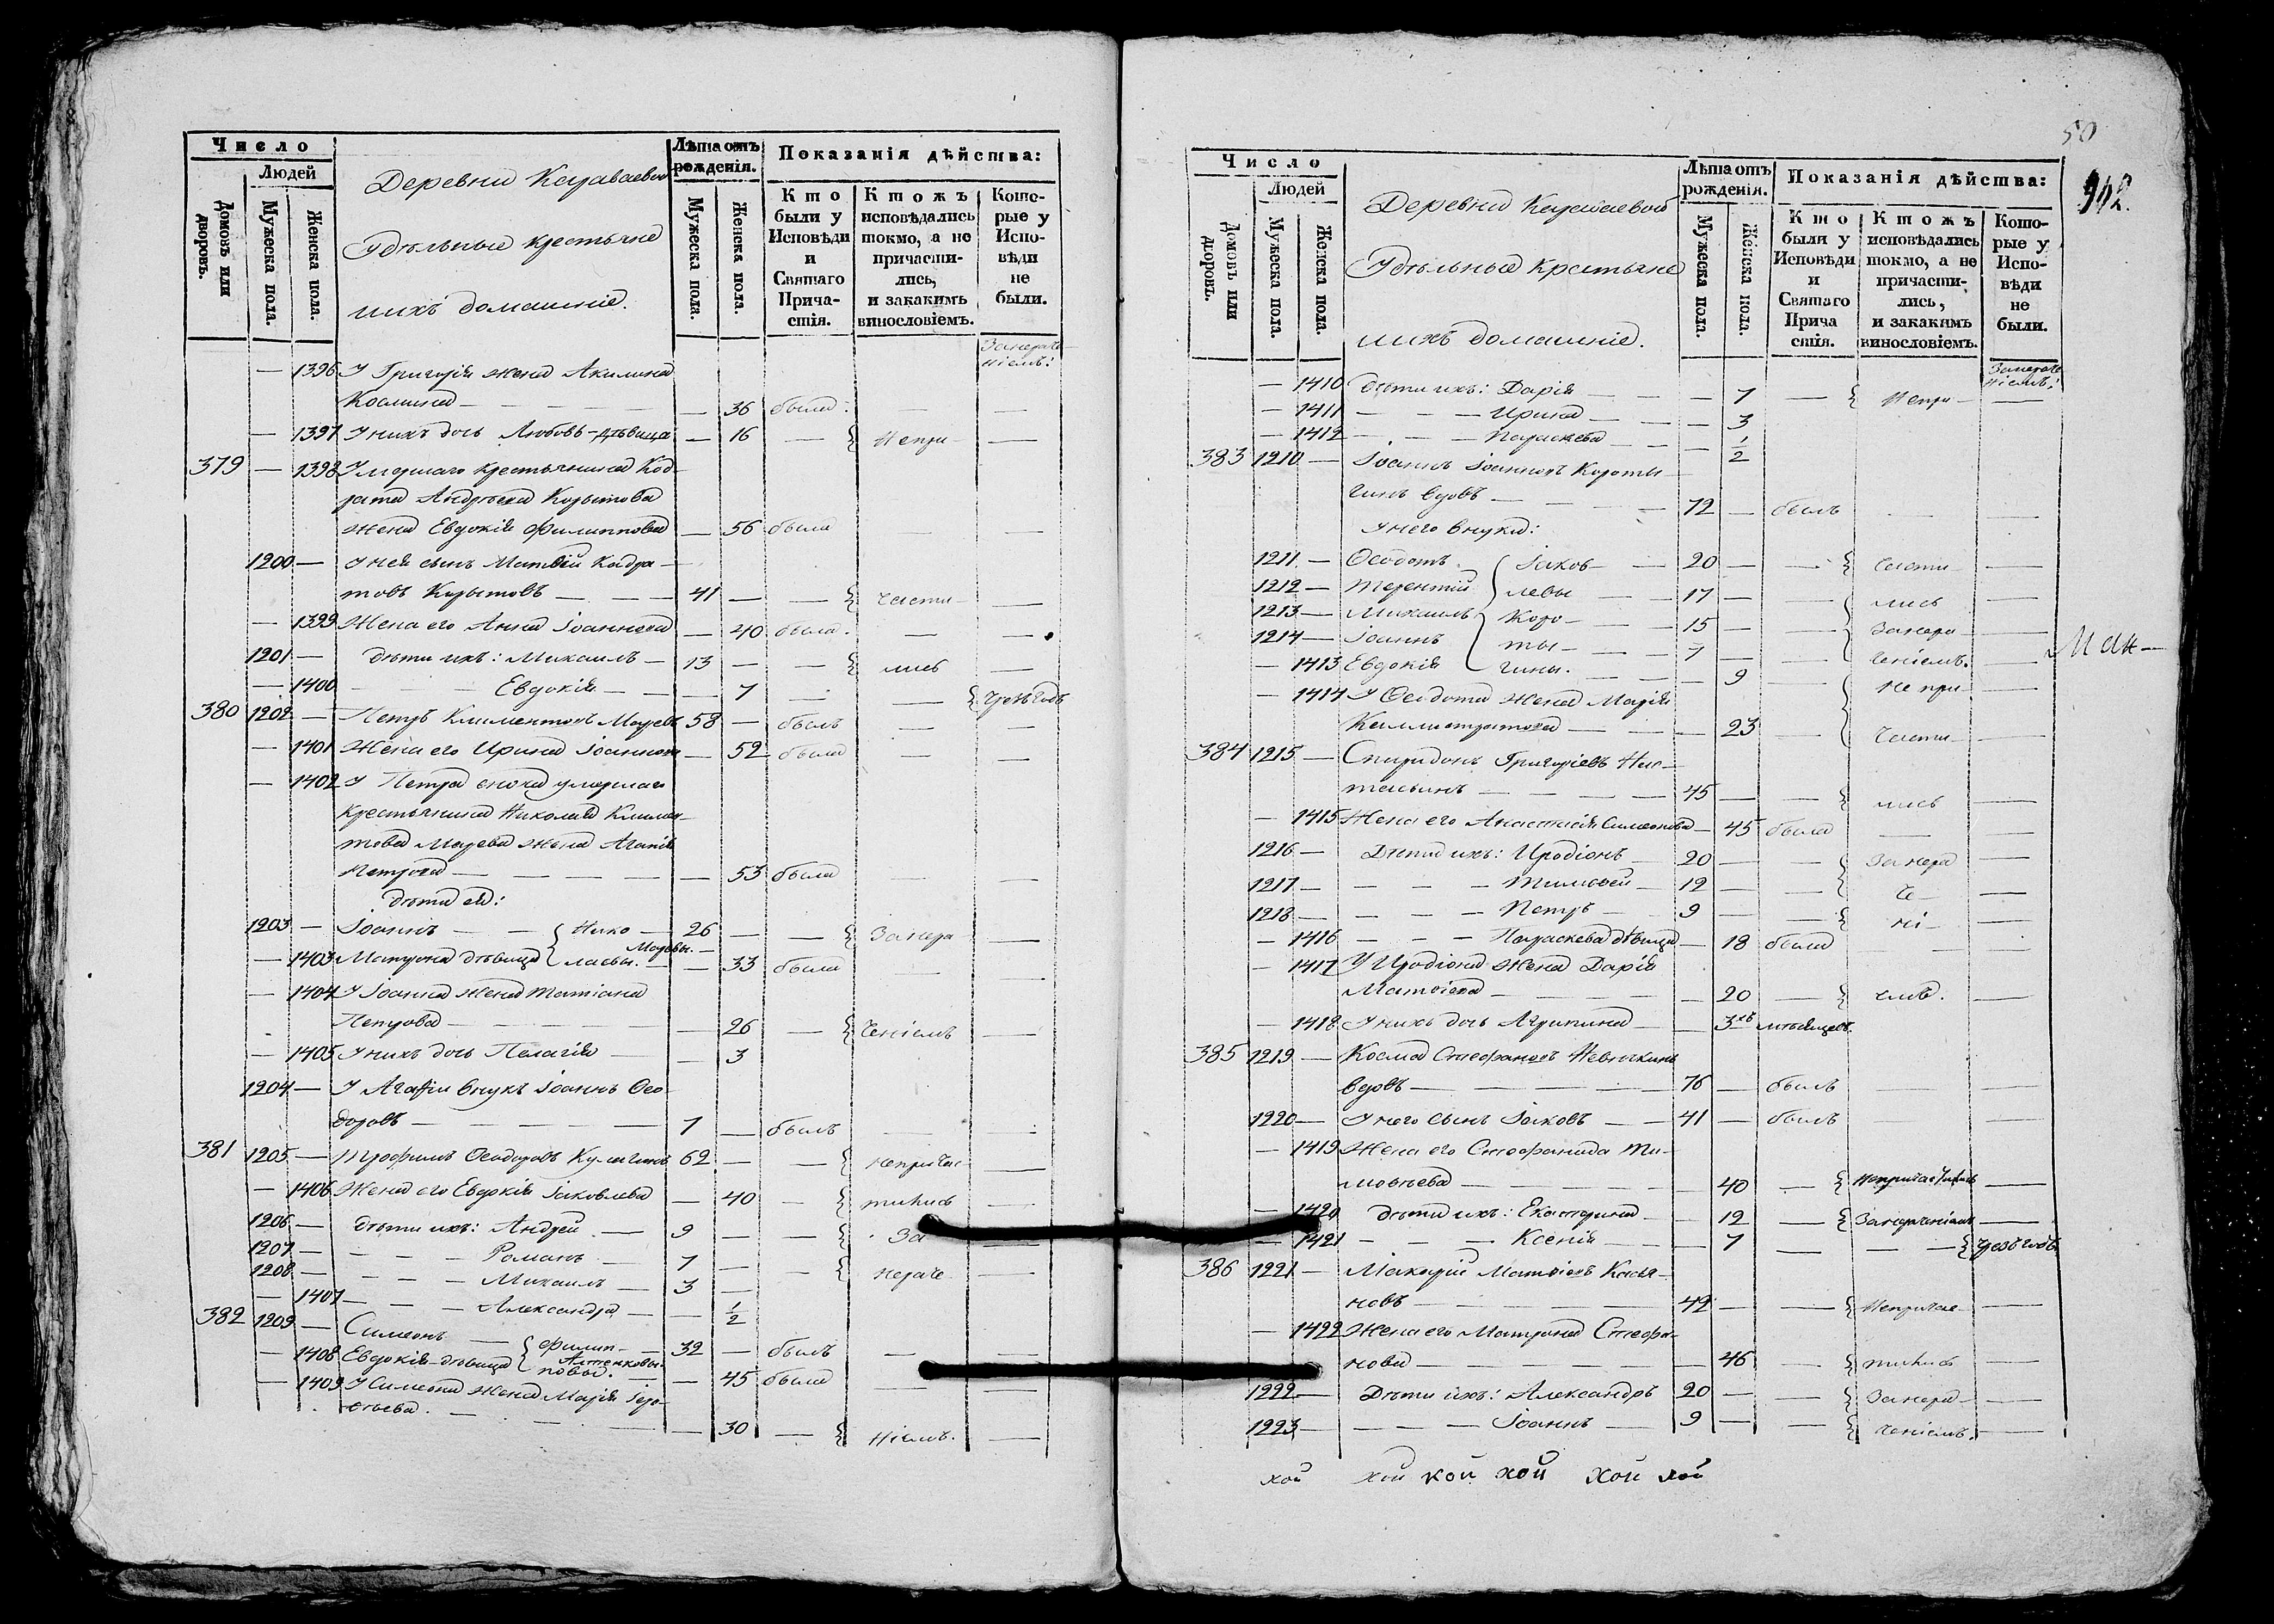 Число
Людей
Домовъ или дворовъ.
Мужеска пола.
Женска пола.
Деревни Караваевой
Удѣльные крестьяне
иихъ домашніе.
Лѣта отъ рожденія.
Мужеска пола.
Женска пола.
Показанія дѣйства:
Кто были у Исповѣди и Святаго Прича-стія.
Ктожъ исповѣдались токмо, а не причасти-лись, и закакимъ винословіемъ.
Кото-рые у Испо-вѣди не были.
Занераче-ніемъ:
— 1396 У Григорія жена Акилина
Космина — — 36 была — —
— 1397 У нихъ дочь Любовь-дѣвица — 16 — Непри- —
379 — 1398 Умершаго крестьянина Код-
рата Андреева Корытова
жена Евдокія Филиппова — 56 была — —
1200 — У ней сынъ Матвѣй Кодра-
товъ Корытовъ — 41 — — части- —
— 1399 Жена его Анна Іоаннова — 40 была — —
1201 — дѣти ихъ: Михаилъ — 13 — — лись —
— 1400 — — Евдокія — — 7 — —
380 1202 — Петръ Климентовъ 58 — былъ — —
— 1401 Жена его Ирина Іоаннова — 52 была — —
— 1402 У Петра сноха умершаго
крестьянина Николая Климен-
това жена
Петрова — — 53 была — —
дѣти ея:
1203 — Іоаннъ — Нико- 26 — — Занера —
— 1403 Матрона дѣвица лаевы. — 33 была — —
— 1404 У Іоанна жена Татіана
Петрова — — 26 — ченіемъ —
— 1405 У нихъ дочь Пелагія — — 3
1204 — У Агафіи внукъ Іоаннъ Ѳео-
доровъ — 7 — былъ — —
381 1205 — Трофимъ Ѳеодоровъ 62 — — непричас- —
— 1406 Жена его Евдокія Іаковлева — 40 — тились —
1206 — дѣти ихъ: Андрей — 9 — — За —
1207 — — — Романъ — 7 — — нераче- —
1208 — — — Михаилъ — 3 —
— 1407 — — Александра — — 1/2
382 1209 — Симеонъ — Филип- 32 — былъ — —
— 1408 Евдокія-дѣвица повы. — 45 была — —
— 1409 У Симеона жена Марія
— 30 — ніемъ. —
50
942.
Число
Людей
Домовъ или дворовъ.
Мужеска пола.
Женска пола.
Деревни Караваевой
Удѣльные крестьяне
иихъ домашніе.
Лѣта отъ рожденія.
Мужеска пола.
Женска пола.
Показанія дѣйства:
Кто были у Исповѣди и Святаго Прича стія.
Ктожъ исповѣдались токмо, а не причасти-лись, и закакимъ винословіемъ.
Кото-рые у Испо-вѣди не были.
Занераче ніемъ:
— 1410 дѣти ихъ: Дарія — — 7 — Непри- —
— 1411 — — Ирина — — 3
— 1412 — — Параскева — — 1/2
383 1210 — Іоаннъ Іоанновъ Короты-
гинъ вдовъ — 72 — былъ — —
У него внуки:
1211 — Ѳеодотъ Іаков- 20 — — части- —
1212 — Терентій левы 17 — — лись —
1213 — Михаилъ Коро- 15 — — Занера- —
1214 — Іоаннъ ты- 7 — — ченіемъ. —
— 1413 Евдокія гины. — 9 — Непри- —
— 1414 У Ѳеодота жена Марія
Каллистратова — — 23 — части- —
384 1215 — Спиридонъ Григоріевъ
45 — — лись —
— 1415 Жена его Анастасія Симеонова — 45 была — —
1216 — Дѣти ихъ: Иродіонъ — 20 — — Занера —
1217 — — — Тимоѳей — 12 — — че- —
1218 — — — Петръ — 9 — — ні- —
— 1416 — — Параскева дѣвица — 18 была — —
— 1417 У Иродіона жена Дарія
Матвіева — — 20 — емъ. —
— 1418 У нихъ дочь Агрипина — — 3хъ мѣсяцевъ.
385 1219 — Косма Стефановъ
вдовъ — 76 — былъ — —
1220 — У него сынъ Іаковъ — 41 — былъ — —
— 1419 Жена его Стефанида Ти-
моѳеева — — 40 — Непричастились —
— 1420 Дѣти ихъ: Екатерина — — 12 — Занераченіемъ —
— 1421 — — Ксенія — — 7 — —
386 1221 — Макарій Матвіевъ Касья-
новъ — 42 — — Непричас- —
— 1422 Жена его Матрона Стефа-
нова — — 46 — тились —
1222 — Дѣти ихъ: Александръ 20 — — Занера- —
1223 — — — Іоаннъ — 9 — — ченіемъ. —